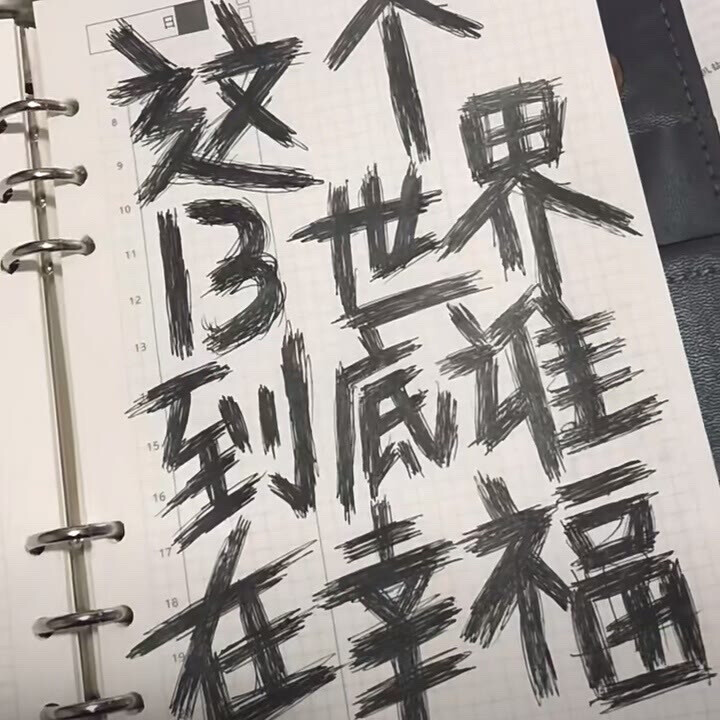 日
这个
13世界
到底谁
在幸福
8
9
10
11
12
13
15
16
17
18
19